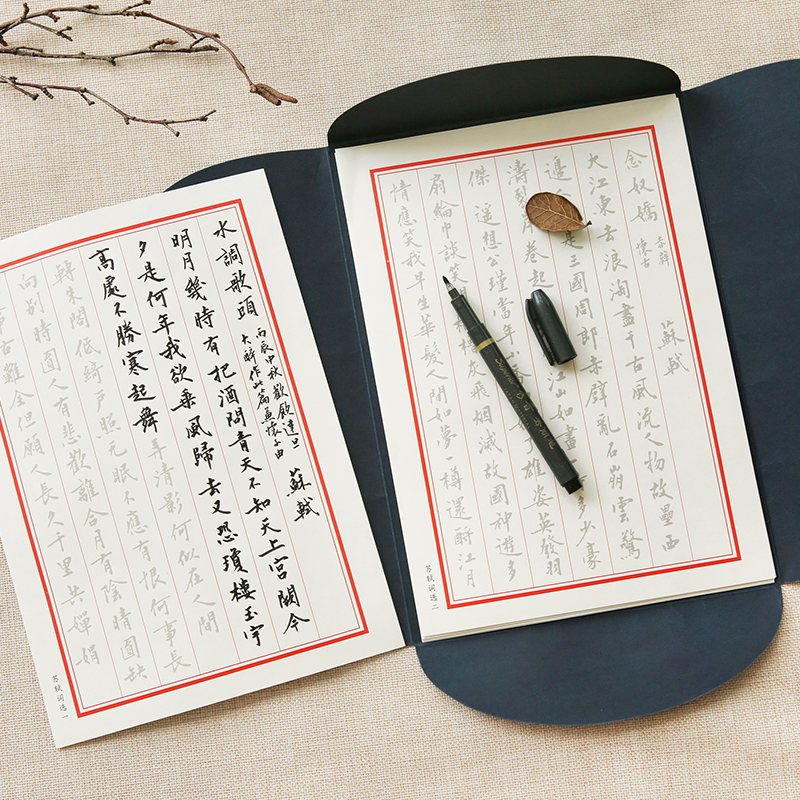 水調歌頭
丙辰中秋歡飲達旦
大醉作此篇兼懷子由
蘇軾
明月幾時有把酒問青天不知天上宮闕今
夕是何年我欲乘風歸去又恐瓊樓玉宇
高處不勝寒起舞弄清影何似在人間
轉朱閣低綺戶照无眠不應有恨何事長
向別時圓人有悲歡離合月有陰晴圓缺
事古難全但願人長久千里共嬋娟
苏轼词选一
念奴嬌
赤壁
懷古
蘇軾
大江東去浪淘盡千古風流人物故壘西
邊是三國周郎赤壁亂石崩雲驚
濤裂岸卷起江山如畫多少豪
傑遙想公瑾當年雄姿英發羽
扇綸巾談笑灰飛烟滅故國神遊多
情應笑我早生華髮人間如夢一樽還酹江月
苏轼词选二